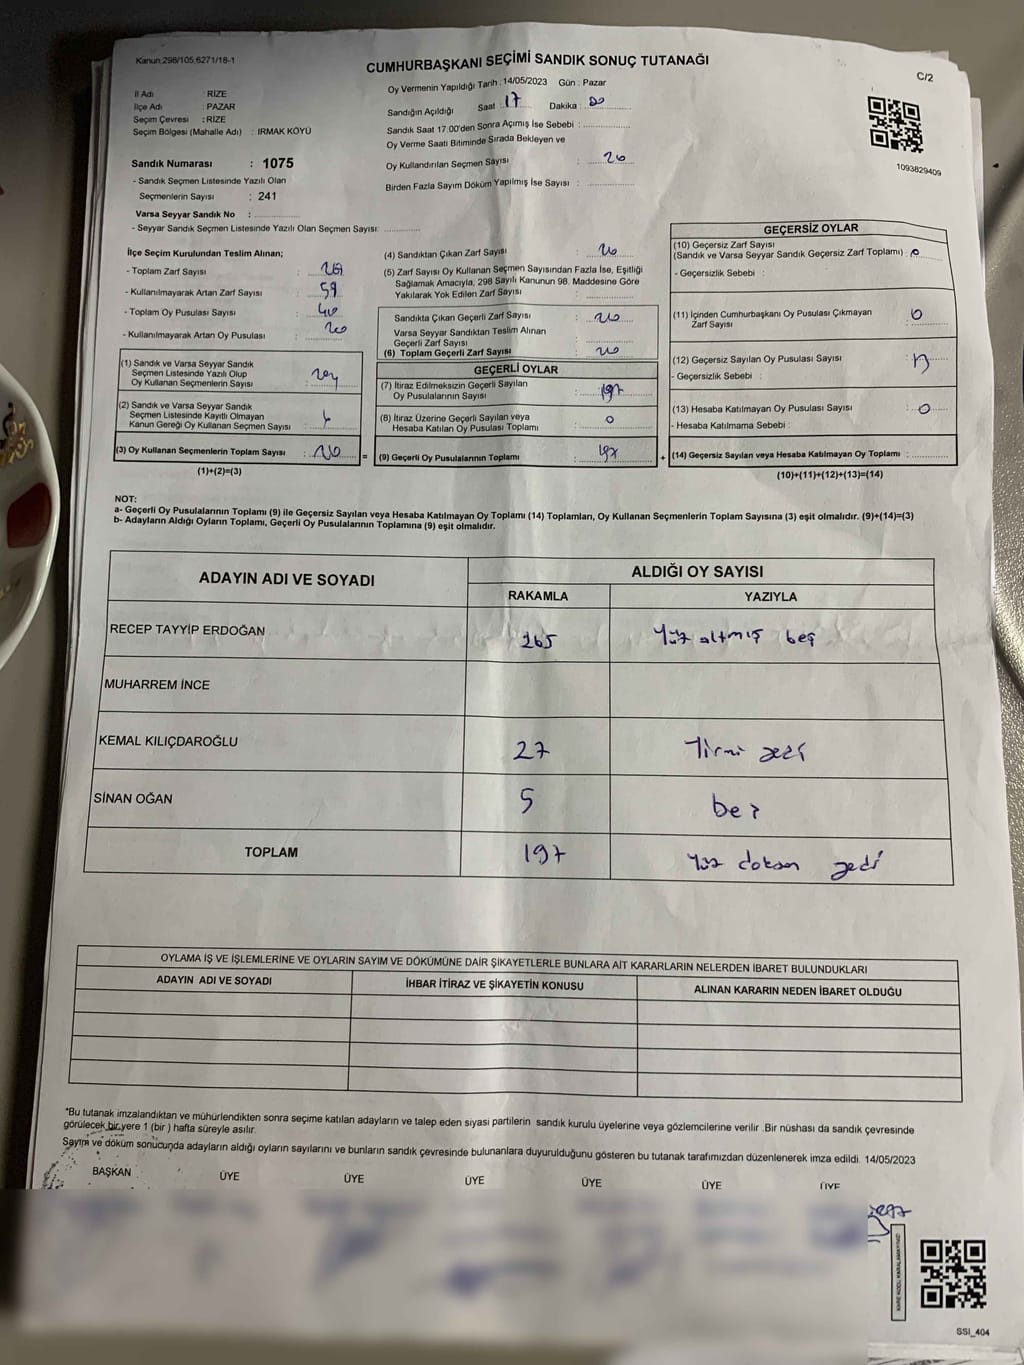 Kanun.298/105,6271/18-1
CUMHURBAŞKANI SEÇİMİ SANDIK SONUÇ TUTANAĞI
C/2
İl Adı : RİZE
İlçe Adı : PAZAR
Seçim Çevresi : RİZE
Seçim Bölgesi (Mahalle Adı) : IRMAK KÖYÜ
Sandık Numarası : 1075
- Sandık Seçmen Listesinde Yazılı Olan
Seçmenlerin Sayısı : 241
Varsa Seyyar Sandık No :
- Seyyar Sandık Seçmen Listesinde Yazılı Olan Seçmen Sayısı:
Oy Vermenin Yapıldığı Tarih : 14/05/2023 Gün : Pazar
Sandığın Açıldığı Saat : 17 Dakika :
Sandık Saat 17.00'den Sonra Açımış İse Sebebi :
Oy Verme Saati Bitiminde Sırada Bekleyen ve
Oy Kullandırılan Seçmen Sayısı :
Birden Fazla Sayım Döküm Yapılmış İse Sayısı :
1093829409
İlçe Seçim Kurulundan Teslim Alınan;
- Toplam Zarf Sayısı :
- Kullanılmayarak Artan Zarf Sayısı : 59
- Toplam Oy Pusulası Sayısı :
- Kullanılmayarak Artan Oy Pusulası :
(1) Sandık ve Varsa Seyyar Sandık
Seçmen Listesinde Yazılı Olup
Oy Kullanan Seçmenlerin Sayısı :
(2) Sandık ve Varsa Seyyar Sandık
Seçmen Listesinde Kayıtlı Olmayan
Kanun Gereği Oy Kullanan Seçmen Sayısı :
(3) Oy Kullanan Seçmenlerin Toplam Sayısı :
(1)+(2)=(3)
(4) Sandıktan Çıkan Zarf Sayısı :
(5) Zarf Sayısı Oy Kullanan Seçmen Sayısından Fazla İse, Eşitliği
Sağlamak Amacıyla, 298 Sayılı Kanunun 98. Maddesine Göre
Yakılarak Yok Edilen Zarf Sayısı :
Sandıkta Çıkan Geçerli Zarf Sayısı :
Varsa Seyyar Sandıktan Teslim Alınan
Geçerli Zarf Sayısı :
(6) Toplam Geçerli Zarf Sayısı :
GEÇERLİ OYLAR
(7) İtiraz Edilmeksizin Geçerli Sayılan
Oy Pusulalarının Sayısı : 197
(8) İtiraz Üzerine Geçerli Sayılan veya
Hesaba Katılan Oy Pusulası Toplamı : 0
= (9) Geçerli Oy Pusulalarının Toplamı : 197
GEÇERSİZ OYLAR
(10) Geçersiz Zarf Sayısı
(Sandık ve Varsa Seyyar Sandık Geçersiz Zarf Toplamı) : 0
- Geçersizlik Sebebi :
(11) İçinden Cumhurbaşkanı Oy Pusulası Çıkmayan
Zarf Sayısı : 0
(12) Geçersiz Sayılan Oy Pusulası Sayısı :
- Geçersizlik Sebebi :
(13) Hesaba Katılmayan Oy Pusulası Sayısı : 0
- Hesaba Katılmama Sebebi :
+ (14) Geçersiz Sayılan veya Hesaba Katılmayan Oy Toplamı :
(10)+(11)+(12)+(13)=(14)
NOT:
a- Geçerli Oy Pusulalarının Toplamı (9) ile Geçersiz Sayılan veya Hesaba Katılmayan Oy Toplamı (14) Toplamları, Oy Kullanan Seçmenlerin Toplam Sayısına (3) eşit olmalıdır. (9)+(14)=(3)
b- Adayların Aldığı Oyların Toplamı, Geçerli Oy Pusulalarının Toplamına (9) eşit olmalıdır.
ADAYIN ADI VE SOYADI
ALDIĞI OY SAYISI
RAKAMLA YAZIYLA
RECEP TAYYİP ERDOĞAN 165 Yüz altmış beş
MUHARREM İNCE
KEMAL KILIÇDAROĞLU 27 Yirmi yedi
SİNAN OĞAN 5 beş
TOPLAM 197 Yüz doksan yedi
OYLAMA İŞ VE İŞLEMLERİNE VE OYLARIN SAYIM VE DÖKÜMÜNE DAİR ŞİKAYETLERLE BUNLARA AİT KARARLARIN NELERDEN İBARET BULUNDUKLARI
ADAYIN ADI VE SOYADI İHBAR İTİRAZ VE ŞİKAYETİN KONUSU ALINAN KARARIN NEDEN İBARET OLDUĞU
*Bu tutanak imzalandıktan ve mühürlendikten sonra seçime katılan adayların ve talep eden siyasi partilerin sandık kurulu üyelerine veya gözlemcilerine verilir .Bir nüshası da sandık çevresinde
görülecek bir yere 1 (bir ) hafta süreyle asılır.
Sayım ve döküm sonucunda adayların aldığı oyların sayılarını ve bunların sandık çevresinde bulunanlara duyurulduğunu gösteren bu tutanak tarafımızdan düzenlenerek imza edildi. 14/05/2023
BAŞKAN ÜYE ÜYE ÜYE ÜYE ÜYE ÜYE
SSI_404